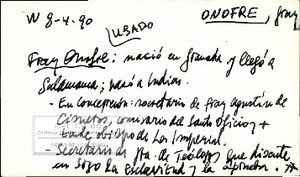 W 8-4-90
USADO
ONOFRE, fray
Fray Onofre; nació en Granada y llegó a
Salamanca; pasó a Indias.
- En Concepción: secretario de fray Agustín de
Cisneros, comisario del Santo Oficio, y
tarde obispo de La Imperial
Secretario de Jta. de Teólogos que discute
en 1670 la esclavitud y la